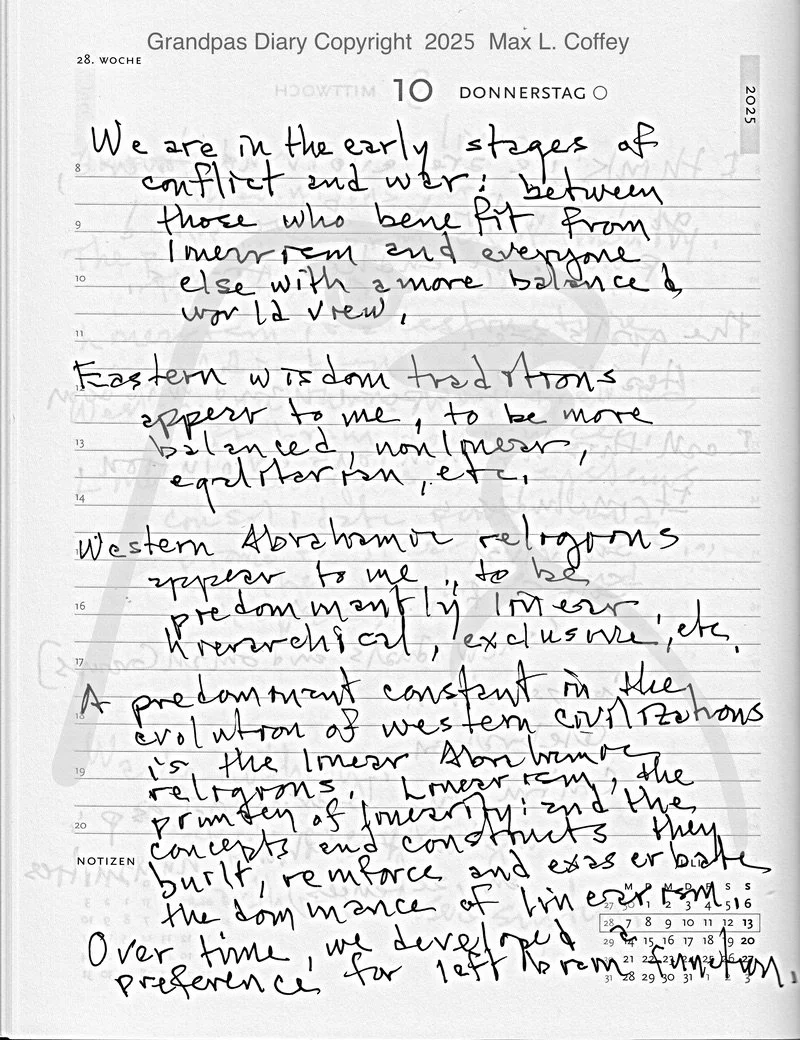 Grandpas Diary Copyright 2025 Max L. Coffey
28. WOCHE
10 DONNERSTAG
2025
We are in the early stages of
conflict and war: between
those who benefit from
linearism and everyone
else with a more balanced
world view.
Eastern wisdom traditions
appear to me, to be more
balanced, nonlinear,
egalitarian, etc.
Western Abrahamic religions
appear to me, to be
predominantly linear,
hierarchical, exclusive, etc.
A predominant constant in the
evolution of western civilizations
is the linear Abrahamic
religions. Linearism, the
primacy of linearity: and the
concepts and constructs they
built, reinforce and exaserbate
the dominance of linearism.
Over time, we developed a
preference for left brain function.
8
9
10
11
12
13
14
16
17
18
19
20
NOTIZEN
M D M D F S S
27 30 1 2 3 4 5 6
28 7 8 9 10 11 12 13
29 14 15 16 17 18 19 20
21 22 23 24 25 26 27
31 28 29 30 31 1 2 3